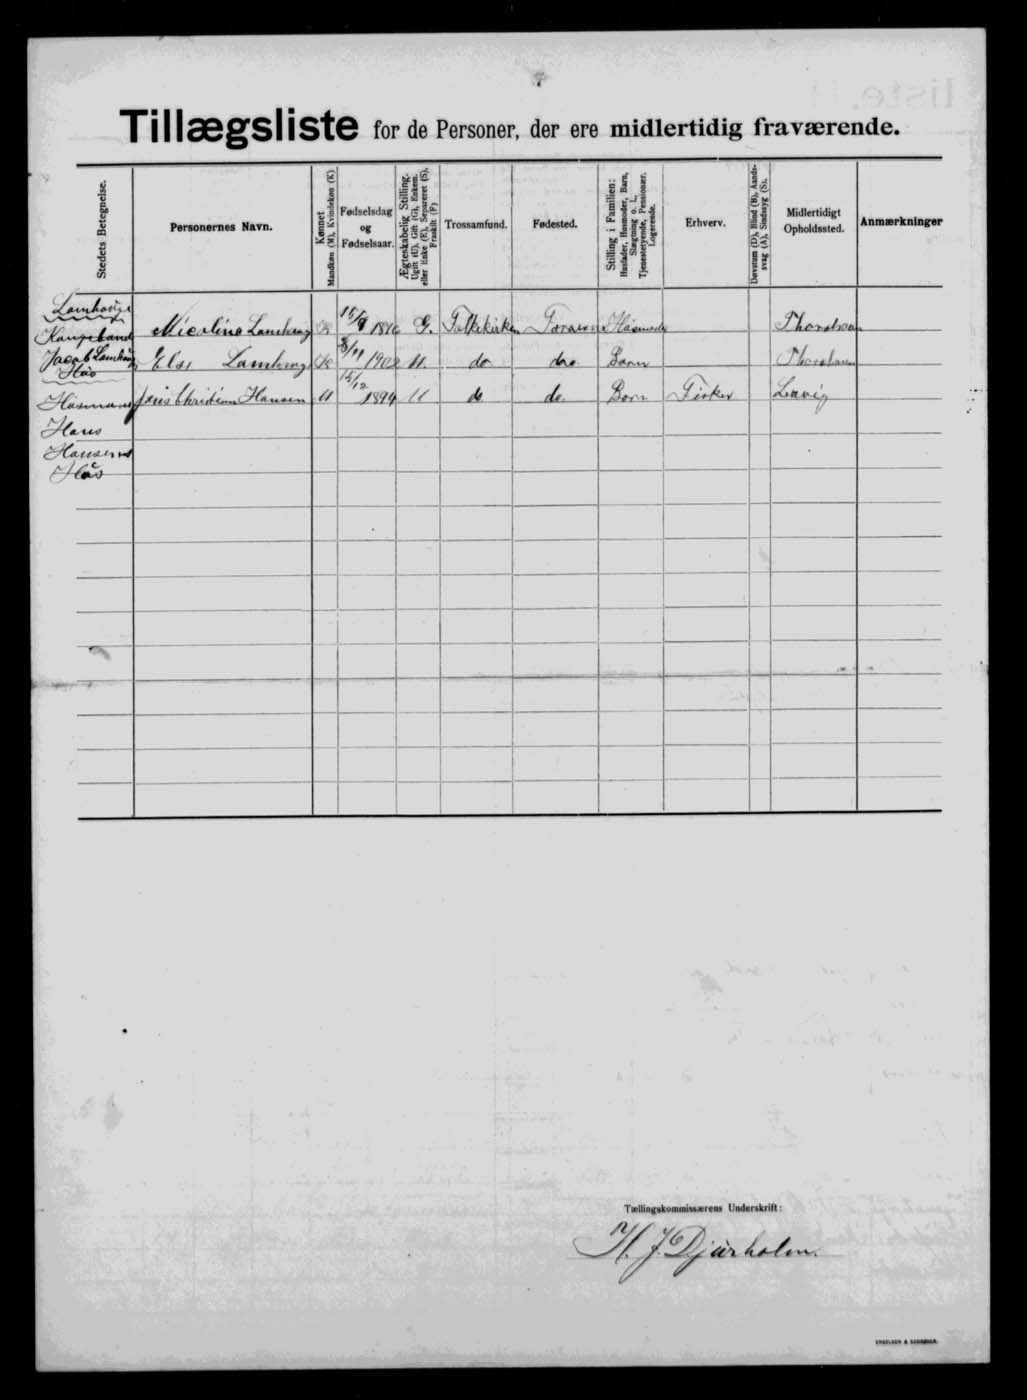 Tillægsliste for de Personer, der ere midlertidig fraværende.
Stedets Betegnelse.
Personernes Navn.
Kønnet
Mandkøn (M), Kvindekøn (K)
Fødselsdag
og
Fødselsaar.
Ægteskabelig Stilling.
Ugift (U), Gift (G), Enkem.
eller Enke (E), Separeret (S),
Fraskilt (F)
Trossamfund.
Fødested.
Stilling i Familien:
Husfader, Husmoder, Barn,
Slægtning o. l.,
Tjenestetyende, Pensionær,
Logerende.
Erhverv.
Døvstum (D), Blind (B), Aands-
svag (A), Sindssyg (S).
Midlertidigt
Opholdssted.
Anmærkninger
Lamhauge
Jacob Lamhauge
Hús
Nicolina Lamhauge K 1876 G. Folkekirken Husmoder Thorshavn
Else Lamhauge K 8/11 1902 U. do do. Barn Thorshavn
Jens Christian Hansen M 15/12 1894 U do do. Barn Fisker
Hans
Hansens
Hús
Tællingskommissærens Underskrift:
H. J. Djurholm.
ENGELSEN & SCHRØDER.